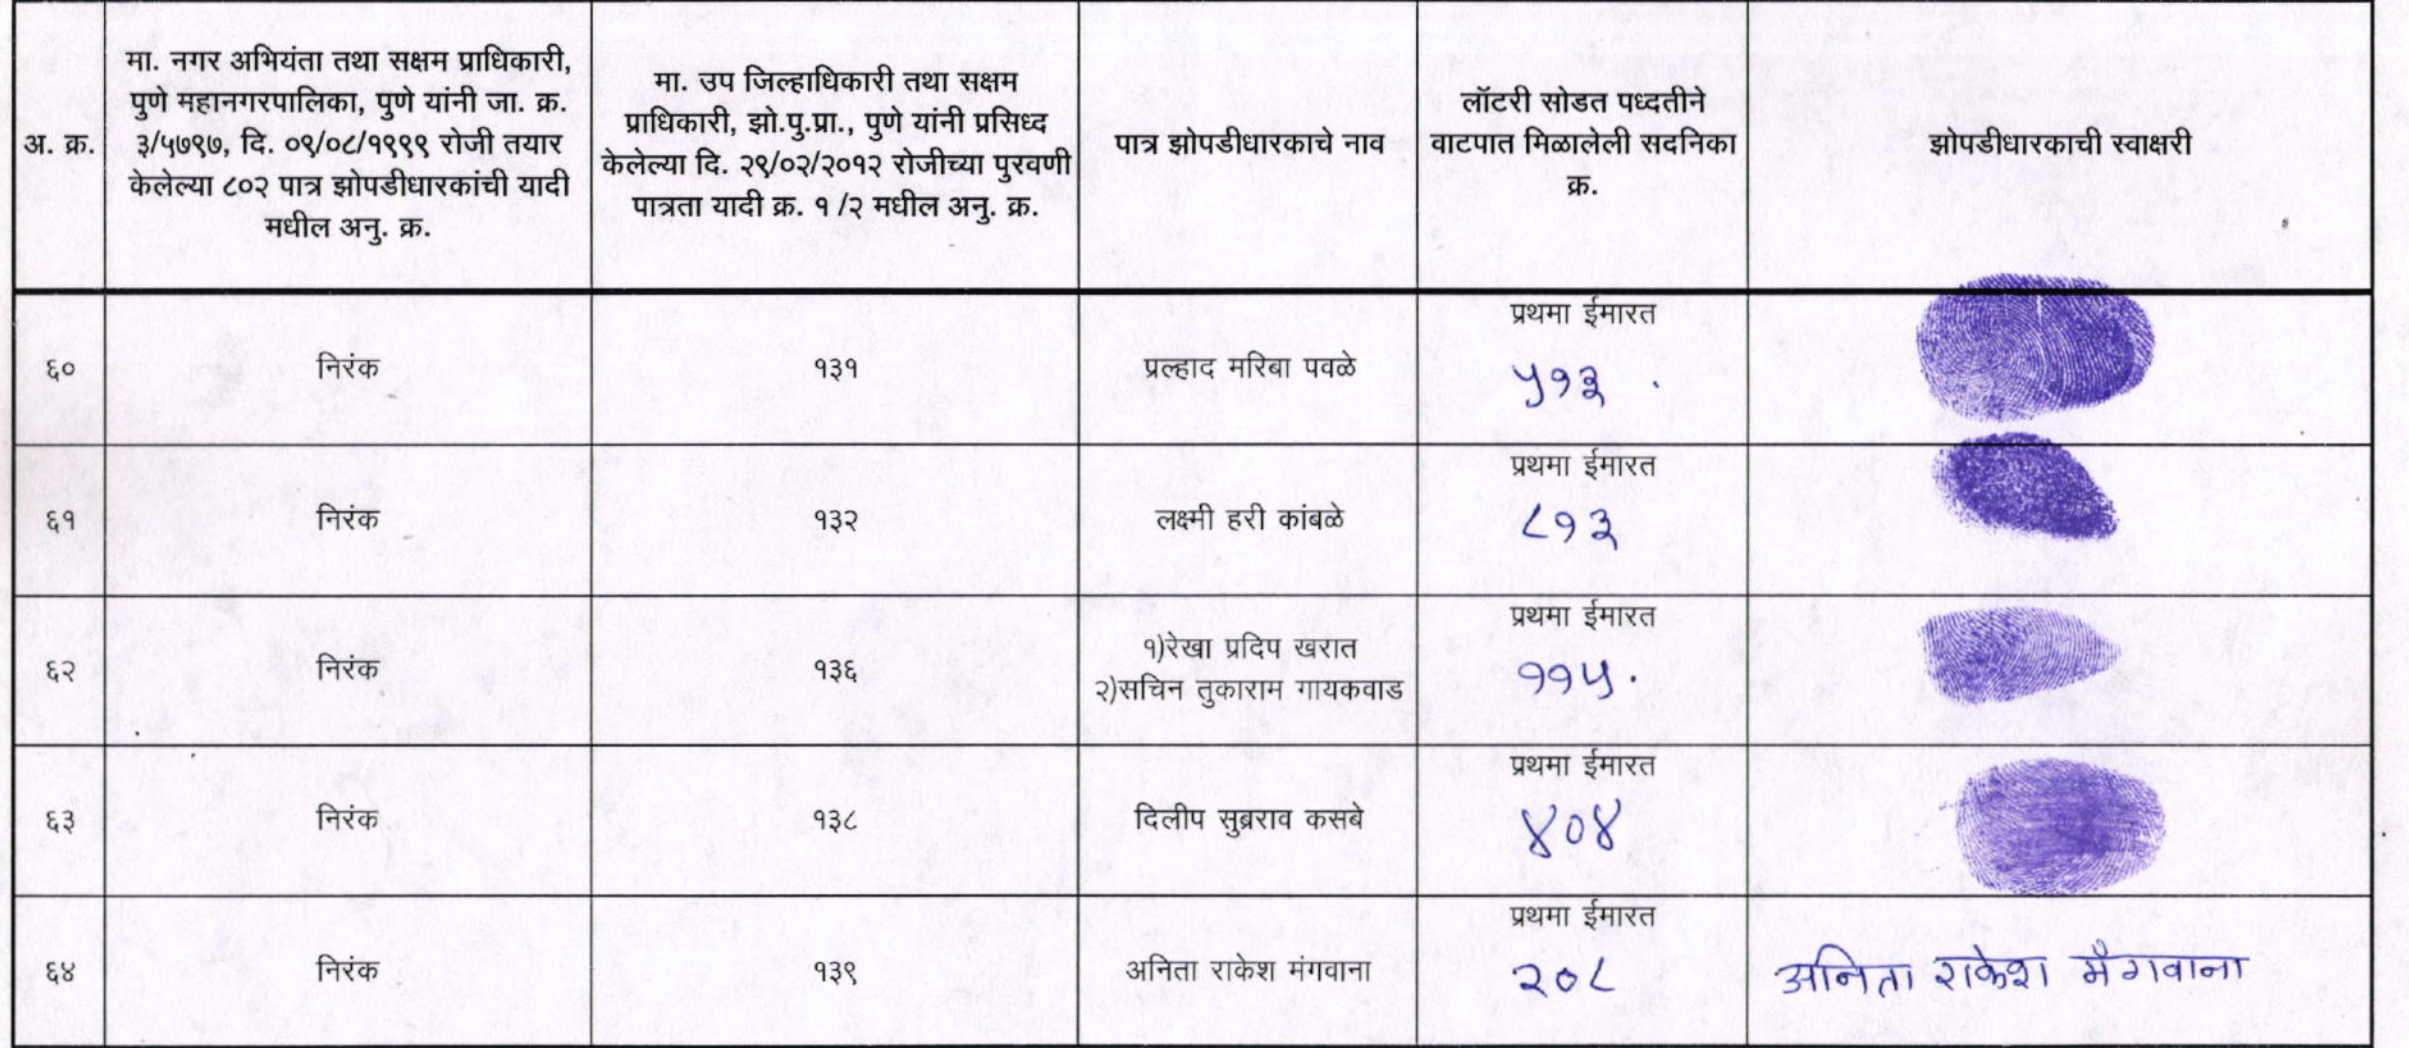 अ. क्र.
मा. नगर अभियंता तथा सक्षम प्राधिकारी,
पुणे महानगरपालिका, पुणे यांनी जा. क्र.
३/५७९७, दि. ०९/०८/१९९९ रोजी तयार
केलेल्या ८०२ पात्र झोपडीधारकांची यादी
मधील अनु. क्र.
मा. उप जिल्हाधिकारी तथा सक्षम
प्राधिकारी, झो.पु.प्रा., पुणे यांनी प्रसिध्द
केलेल्या दि. २९/०२/२०१२ रोजीच्या पुरवणी
पात्रता यादी क्र. १/२ मधील अनु. क्र.
पात्र झोपडीधारकाचे नाव
लॉटरी सोडत पध्दतीने
वाटपात मिळालेली सदनिका
क्र.
झोपडीधारकाची स्वाक्षरी
६०
निरंक
१३१
प्रल्हाद मरिबा पवळे
प्रथमा ईमारत
५१३
६१
निरंक
१३२
लक्ष्मी हरी कांबळे
प्रथमा ईमारत
८१३
६२
निरंक
१३६
१)रेखा प्रदिप खरात
२)सचिन तुकाराम गायकवाड
प्रथमा ईमारत
११५.
६३
निरंक
१३८
दिलीप सुब्रराव कसबे
प्रथमा ईमारत
४०४
६४
निरंक
१३९
अनिता राकेश मंगवाना
प्रथमा ईमारत
२०८
अनिता राकेश मँगवाना